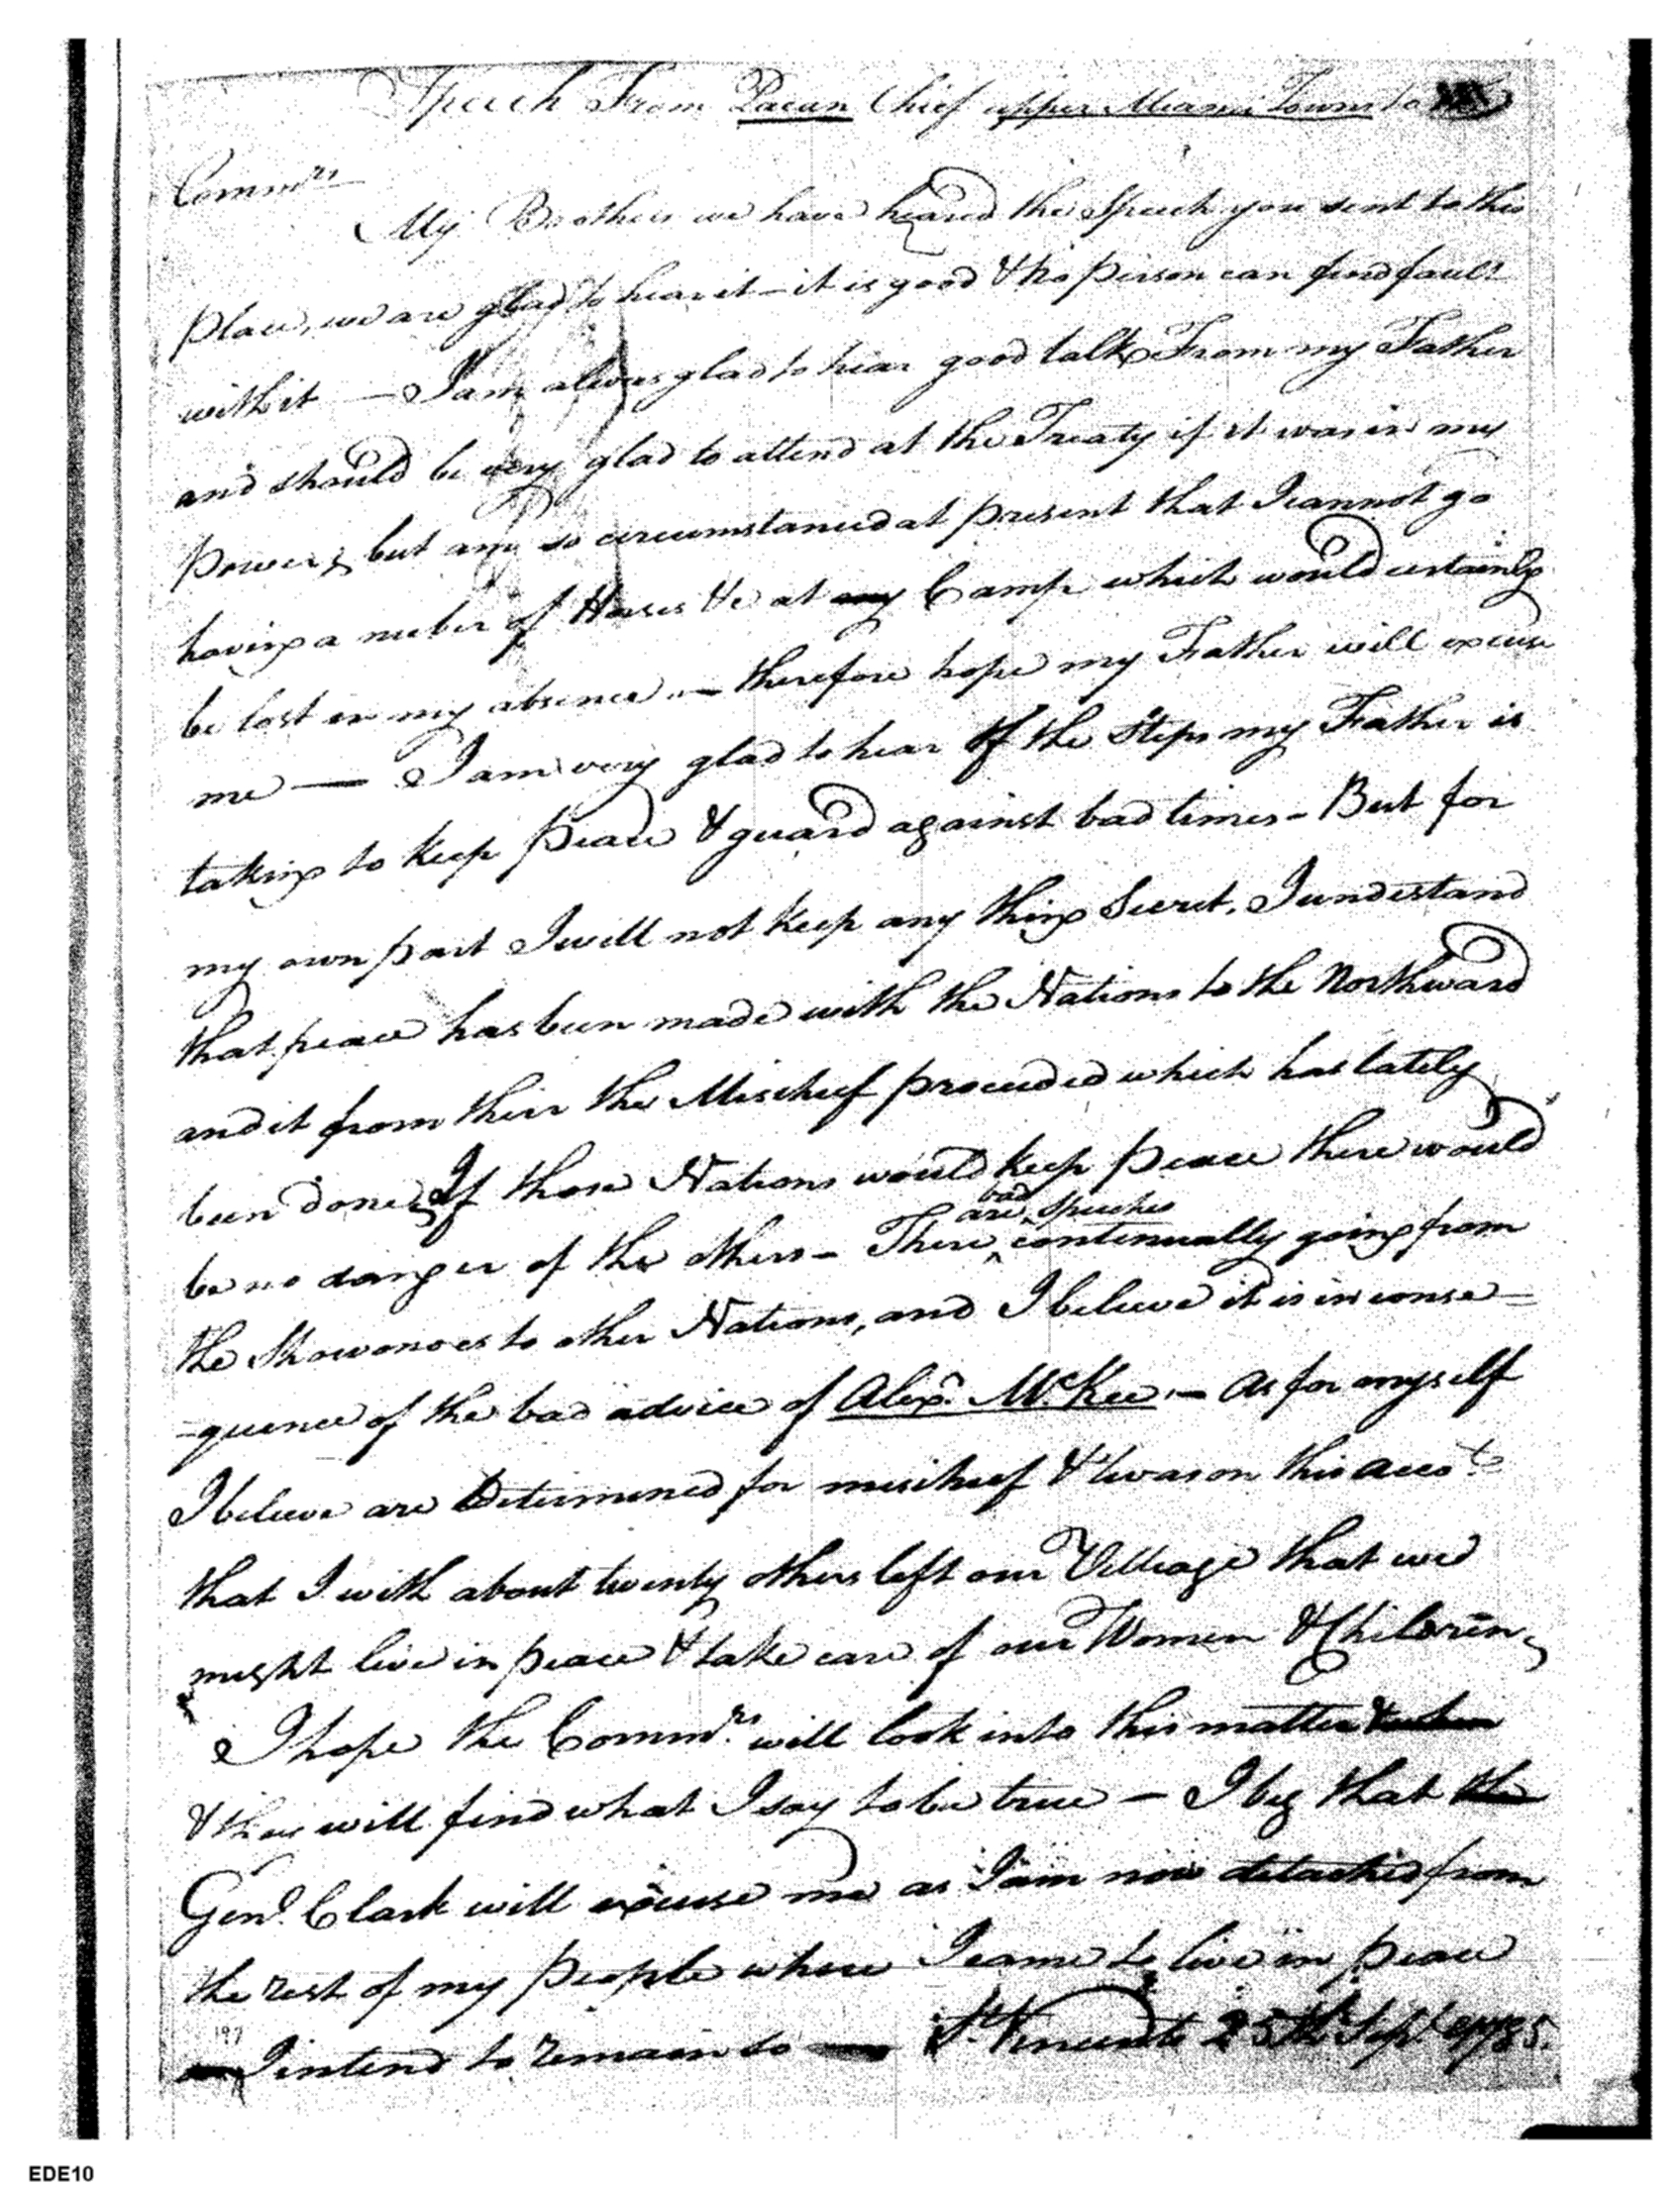 Speech From Pacan Chief upper Miami Towns to
Commrs
My Brothers we have heared the Speech you sent to this
place, we are glad to hear it - it is good & no person can find fault
with it — I am always glad to hear good talk From my Father
and should be very glad to attend at the Treaty if it was in my
power, but am so circumstanced at present that I cannot go
having a nuber of Horses &c at my Camp which would certainly
be lost in my absence — therefore hope my Father will excuse
me — I am very glad to hear of the Steps my Father is
taking to keep peace & guard against bad times - But for
my own part I will not keep any thing Secret, I understand
that peace has been made with the Nations to the Northward
and it from their the Mischief proceeded which has lately
been done, If those Nations would keep peace there would
be no danger of the others - There are bad speeches continually going from
the Shawonoes to other Nations, and I believe it is in conse=
=quence of the bad advice of Alexr. McKee. — As for myself
I believe are Determined for mischief & twas on this accot.
that I with about twenty others left our Village that we
might live in peace & take care of our Women & Children,
I hope the Commrs. will look into this matter
& they will find what I say to be true — I beg that the
Genl. Clark will excuse me as I am now detached from
the rest of my people where I came to live in peace
I intend to remain so — St. Vincents 25th Sept 1785.
197
EDE10